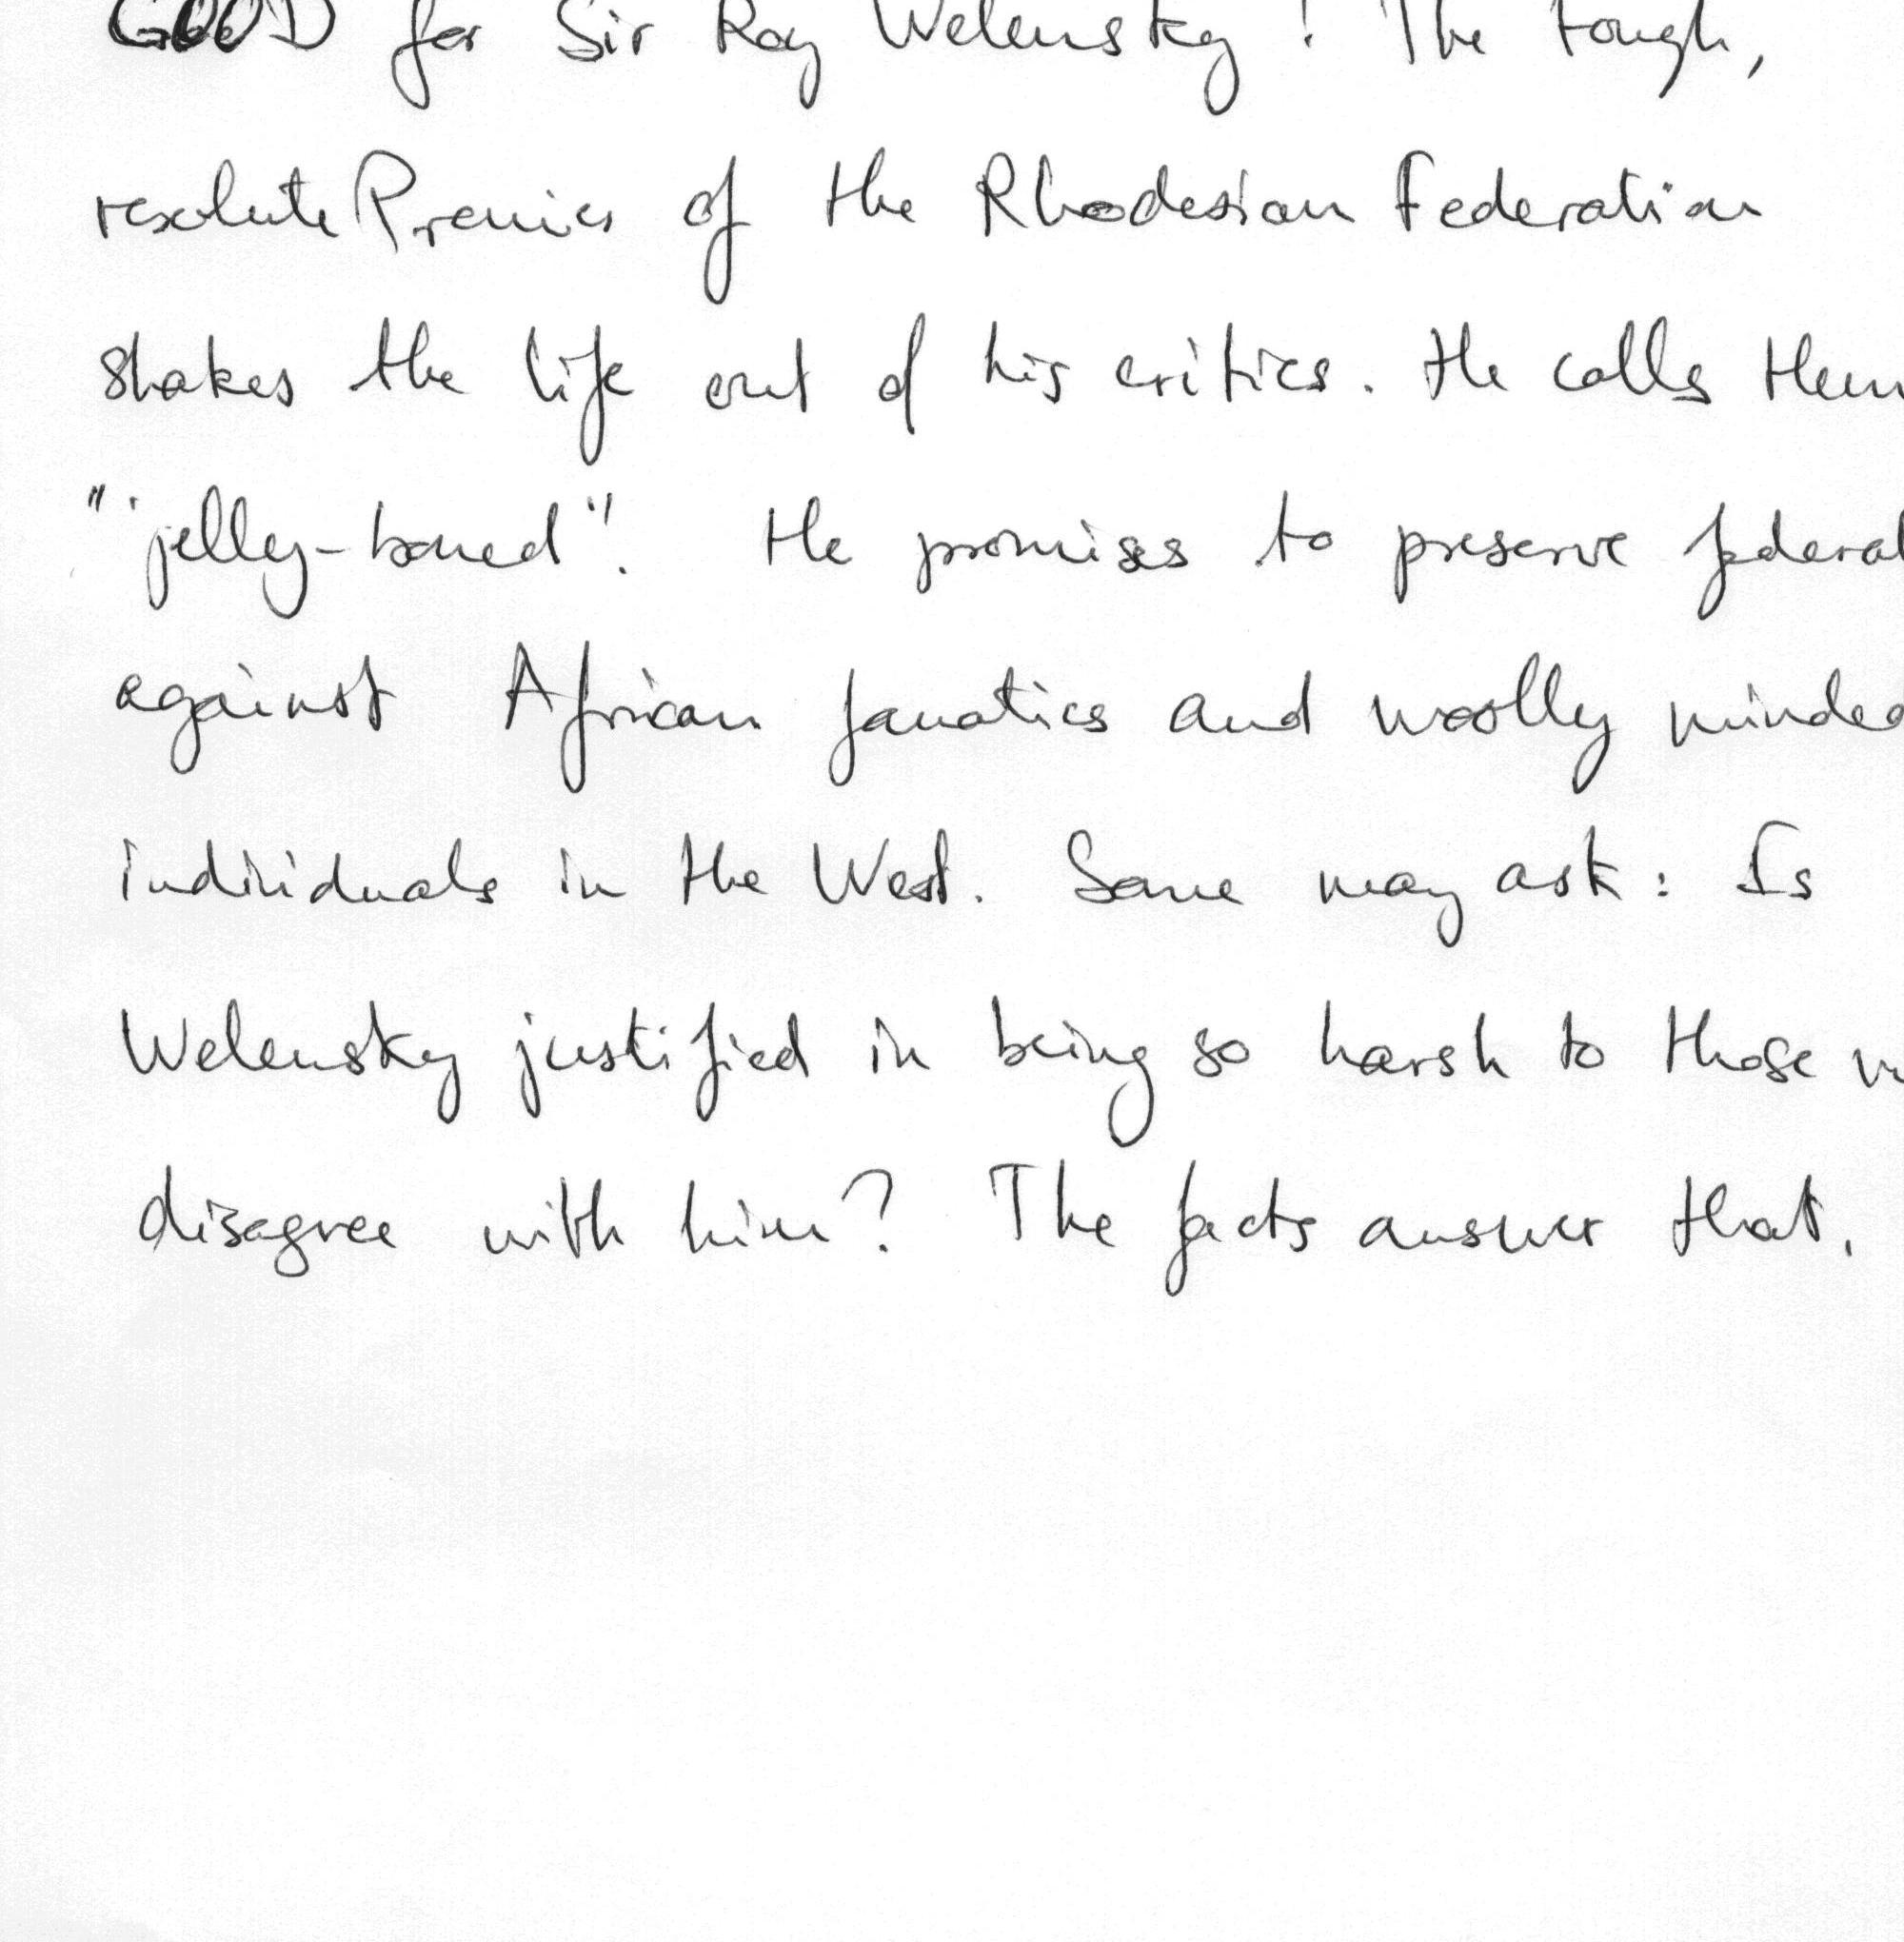 GOOD for Sir Roy Welensky! The tough,
resolute Premier of the Rhodesian Federation
shakes the life out of his critics. He calls them
"jelly-boned". He promises to preserve federal
against African fanatics and woolly minded
individuals in the West. Some may ask: Is
Welensky justified in being so harsh to those
disagree with him? The facts answer that.